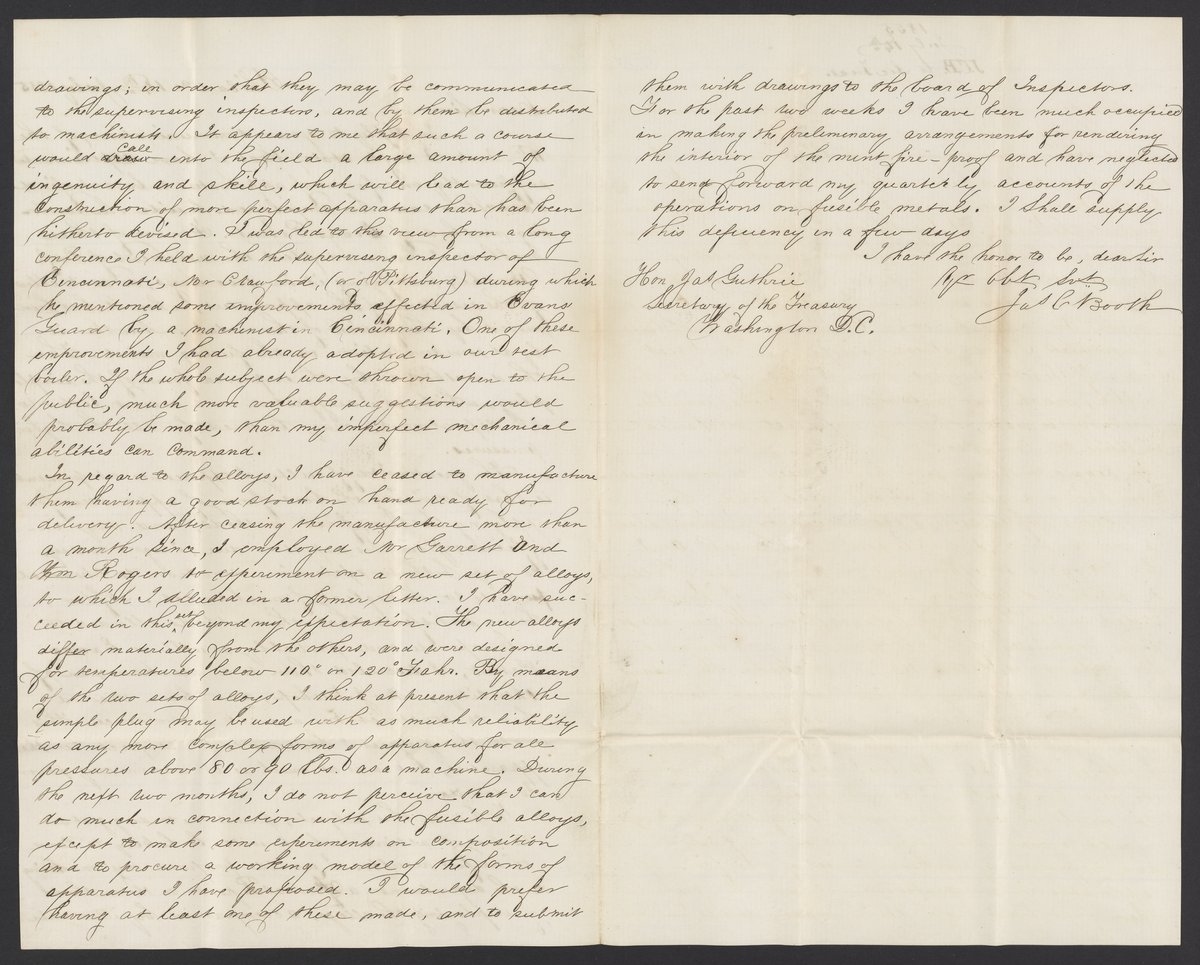 drawings; in order that they may be communicated
to the supervising inspectors, and by them be distributed
to machinists. It appears to me that such a course
call
would draw into the field a large amount of
ingenuity and skill, which will lead to the
construction of more perfect apparatus than has been
hitherto devised. I was led to this view from a long
conference I held with the supervising inspector of
Cincinnati, Mr Crawford, (or of Pittsburg) during which
he mentioned some improvements effected in Evans
Guard by a machinist in Cincinnati. One of these
improvements I had already adopted in our test
boiler. If the whole subject were thrown open to the
public, much more valuable suggestions would
probably be made, than my imperfect mechanical
abilities can command.
In regard to the alloys, I have ceased to manufacture
them having a good stock on hand ready for
delivery. After ceasing the manufacture more than
a month since, I employed Mr Garrett and
Wm Rogers to experiment on a new set of alloys,
to which I alluded in a former letter. I have suc-
ceeded in this set beyond my expectation. The new alloys
differ materially from the others, and were designed
for temperatures below 110° or 120° Fahr. By means
of the two sets of alloys, I think at present that the
simple plug may be used with as much reliability
as any more complex forms of apparatus for all
pressures above 80 or 90 lbs. as a machine. During
the next two months, I do not perceive that I can
do much in connection with the fusible alloys,
except to make some experiments on composition
and to procure a working model of the forms of
apparatus I have proposed. I would prefer
having at least one of these made, and to submit
them with drawings to the board of Inspectors.
For the past two weeks I have been much occupied
in making the preliminary arrangements for rendering
the interior of the mint fire-proof and have neglected
to send forward my quarterly accounts of the
operations on fusible metals. I shall supply
this deficiency in a few days
I have the honor to be, dear sir
yr obt Svt
Jas C Booth
Hon. Jas Guthrie
Secretary of the Treasury
Washington D.C.